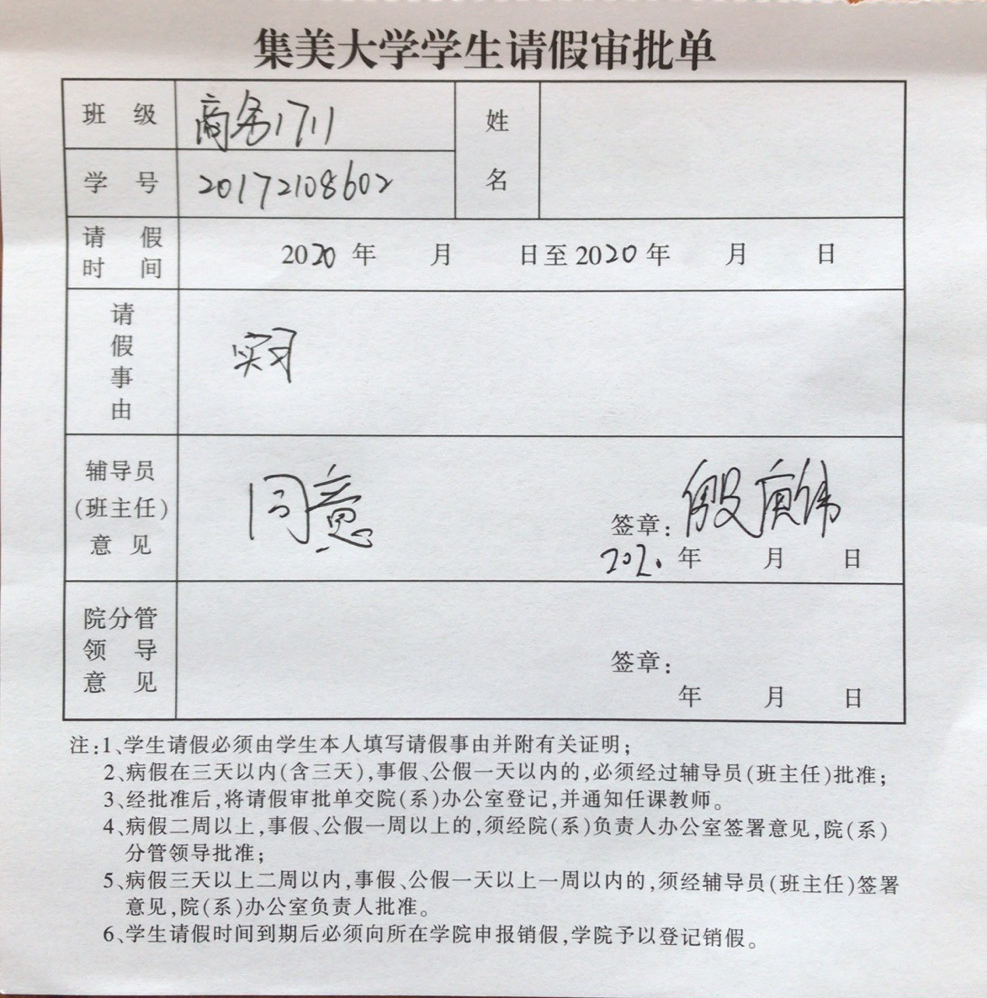 集美大学学生请假审批单
班 级 商务1711
姓 名
学 号 20172108602
请 假 时 间 2020年 月 日至2020年 月 日
请假事由 实习
辅导员(班主任)意 见 同意 签章:殷庚伟
2020年 月 日
院分管领 导意 见 签章:
年 月 日
注:1、学生请假必须由学生本人填写请假事由并附有关证明;
2、病假在三天以内(含三天),事假、公假一天以内的,必须经过辅导员(班主任)批准;
3、经批准后,将请假审批单交院(系)办公室登记,并通知任课教师。
4、病假二周以上,事假、公假一周以上的,须经院(系)负责人办公室签署意见,院(系)
分管领导批准;
5、病假三天以上二周以内,事假、公假一天以上一周以内的,须经辅导员(班主任)签署
意见,院(系)办公室负责人批准。
6、学生请假时间到期后必须向所在学院申报销假,学院予以登记销假。